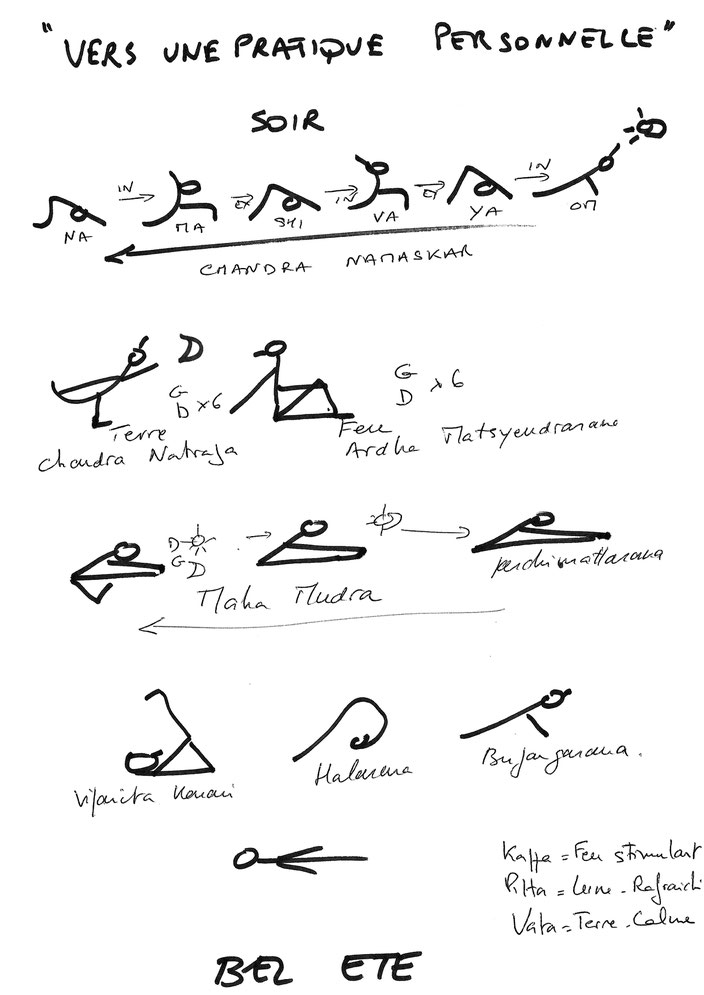 "VERS UNE PRATIQUE PERSONNELLE"
SOIR
IN EX IN EX IN
NA MA SHI VA YA OM
CHANDRA NAMASKAR
D
G
D x6
G
D x6
Terre
Chandra Natraja
Feu
Ardha Matsyendrasana
D
G D
Maha Mudra
Viparita Karani
Halasana
Bujangasana.
Kapha = Feu stimulant
Pitta = Lune - Rafraichi
Vata = Terre - Calme
BEL ETE